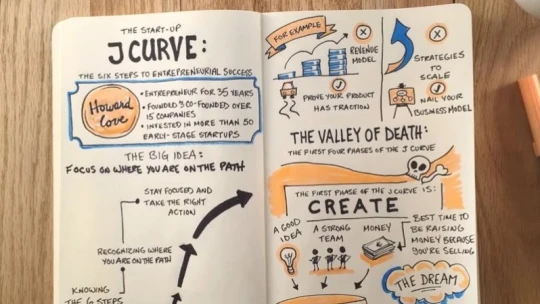 THE START-UP
J CURVE:
THE SIX STEPS TO ENTREPRENEURIAL SUCCESS
Howard
Love
• ENTREPRENEUR FOR 35 YEARS
• FOUNDED &CO-FOUNDED OVER
15 COMPANIES
• INVESTED IN MORE THAN 50
EARLY-STAGE STARTUPS
THE BIG IDEA:
FOCUS ON WHERE YOU ARE ON THE PATH
STAY FOCUSED AND
TAKE THE RIGHT
ACTION
RECOGNIZING WHERE
YOU ARE ON THE PATH
KNOWING
THE 6 STEPS
FOR EXAMPLE
REVENUE
MODEL
PROVE YOUR PRODUCT
HAS TRACTION
STRATEGIES
TO
SCALE
NAIL YOUR
BUSINESS MODEL
THE VALLEY OF DEATH:
THE FIRST FOUR PHASES OF THE J CURVE
THE FIRST PHASE OF THE J CURVE IS:
CREATE
A GOOD
IDEA
A STRONG
TEAM
MONEY
BEST TIME TO
BE RAISING
MONEY BECAUSE
YOU'RE SELLING
THE DREAM